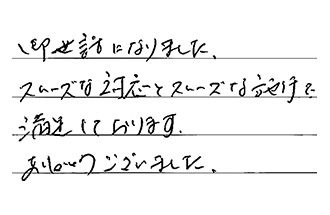 御世話になりました。
スムーズな対応とスムーズな施行に
満足しております。
ありがとうございました。